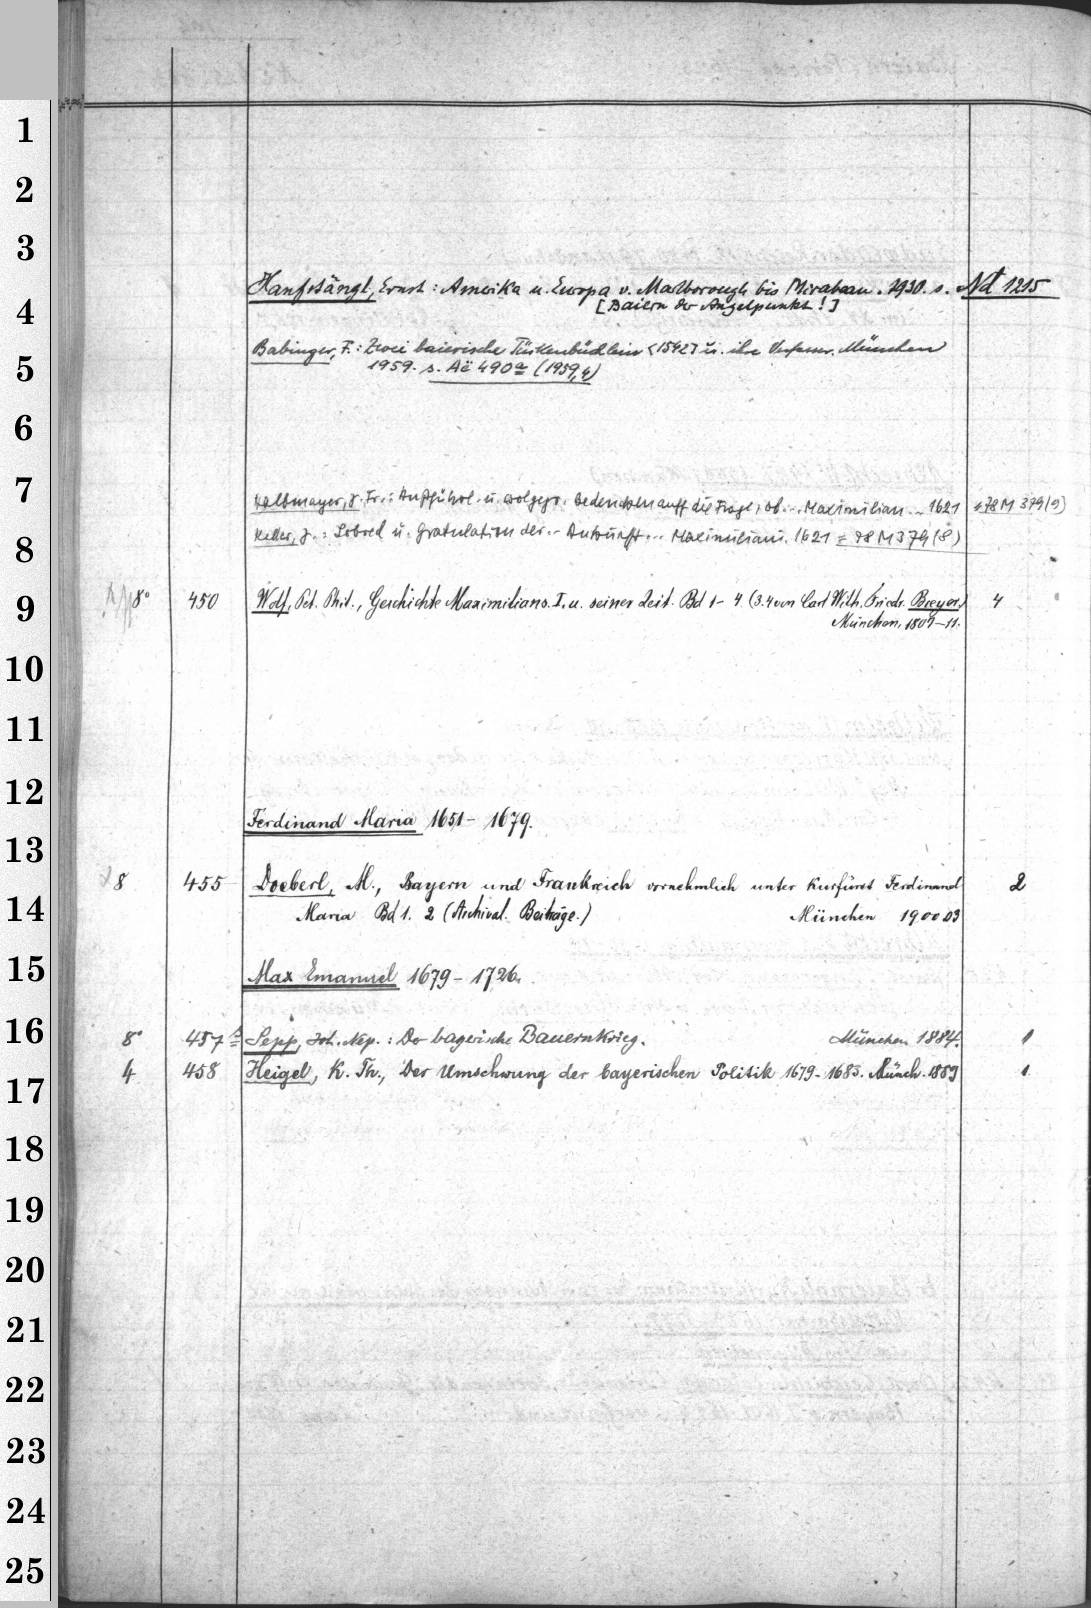 1
2
3
Hanfstängl, Ernst: Amerika u. Europa v. Marlborough bis Mirabeau. 1930. s. Nd 1215
4
[Baiern der Angelpunkt!]
Babinger, F.: Zwei baierische Türkenbüchlein <1542> u. ihre Verfasser. München
5
1959. s. Aë 490a (1959,4)
6
7
Kalbmayer, J. Fr.: Außführl. u. wolgegr. Bedencken auff die Frage, ob... Maximilian... 1621 = 78 M 379(9)
8
Keller, J.: Lobred u. Gratulation der.. Ankunfft... Maximiliani. 1621 = 78 M 379 (8)
9
8° 450 Wolf, Pet. Phil., Geschichte Maximilians. I. u. seiner Zeit. Bd 1-4. (3.4 von Carl Wilh. Friedr. Breyer.) 4
München, 1807-11.
10
11
12
Ferdinand Maria 1651-1679.
13
8 455 Doeberl, M., Bayern und Frankreich vornehmlich unter Kurfürst Ferdinand 2
14
Maria Bd 1. 2 (Archival. Beiträge.) München 1900 03
15
Max Emanuel 1679-1726.
16
8° 457a Sepp, Joh. Nep.: Der bayerische Bauernkrieg. München 1884. 1
4 458 Heigel, K. Th., Der Umschwung der bayerischen Politik 1679-1683. Münch. 1889 1
17
18
19
20
21
22
23
24
25